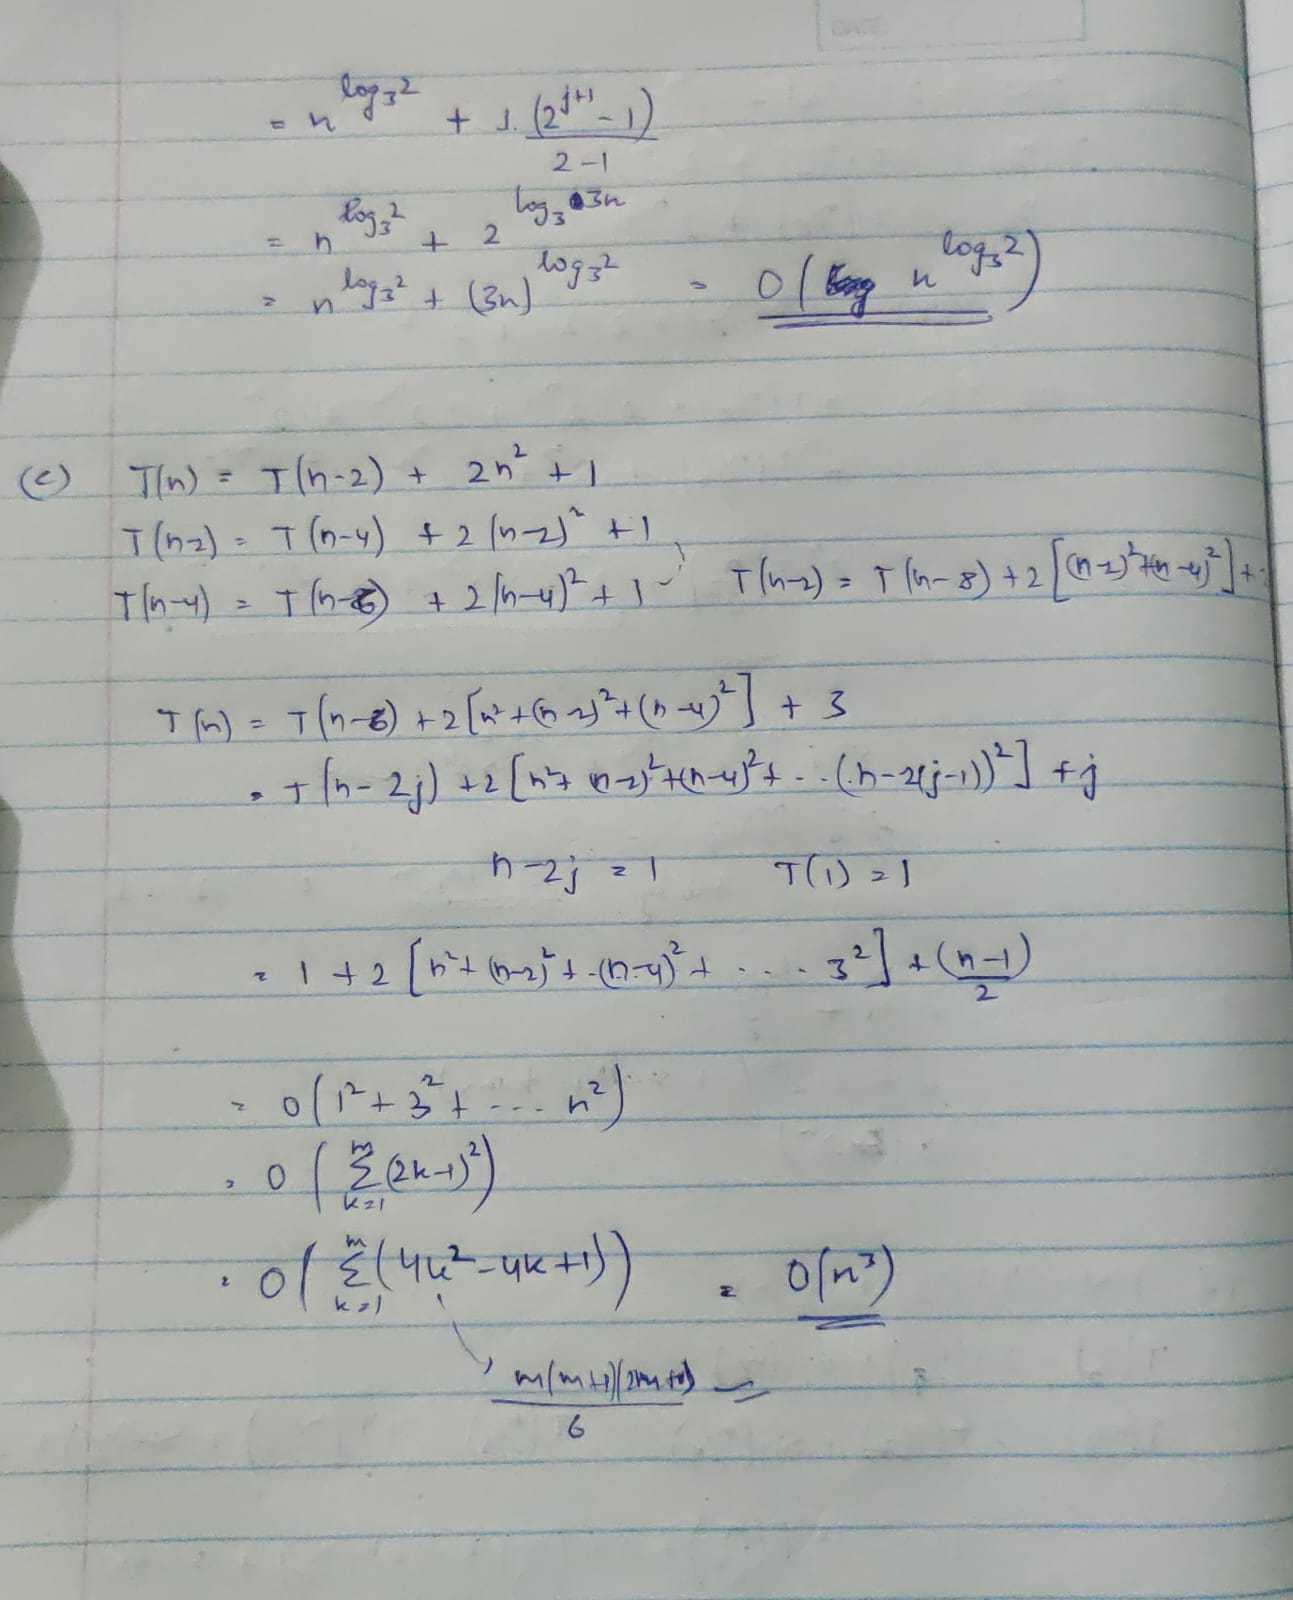 DATE
= n^{log_3 2} + 1.(2^{j+1} - 1)
2-1
= n^{log_3 2} + 2^{log_3 3n}
= n^{log_3 2} + (3n)^{log_3 2} = O( n^{log_3 2})
(c) T(n) = T(n-2) + 2n² + 1
T(n-2) = T(n-4) + 2(n-2)² + 1
T(n-4) = T(n-6) + 2(n-4)² + 1 T(n-2) = T(n-8) + 2[(n-2)²+(n-4)²] +
T(n) = T(n-6) + 2[n²+(n-2)²+(n-4)²] + 3
= T(n-2j) + 2[n²+ (n-2)²+(n-4)²+ ...(n-2(j-1))²] + j
n-2j = 1 T(1) = 1
= 1 + 2[n²+ (n-2)²+ (n-4)²+ .... 3²] + (n-1)
2
= O(1²+3²+ ... n²)
= O(Σ_{k=1}^{m}(2k-1)²)
= O(Σ_{k=1}^{m}(4k²-4k+1)) = O(n³)
m(m+1)(2m+1)
6